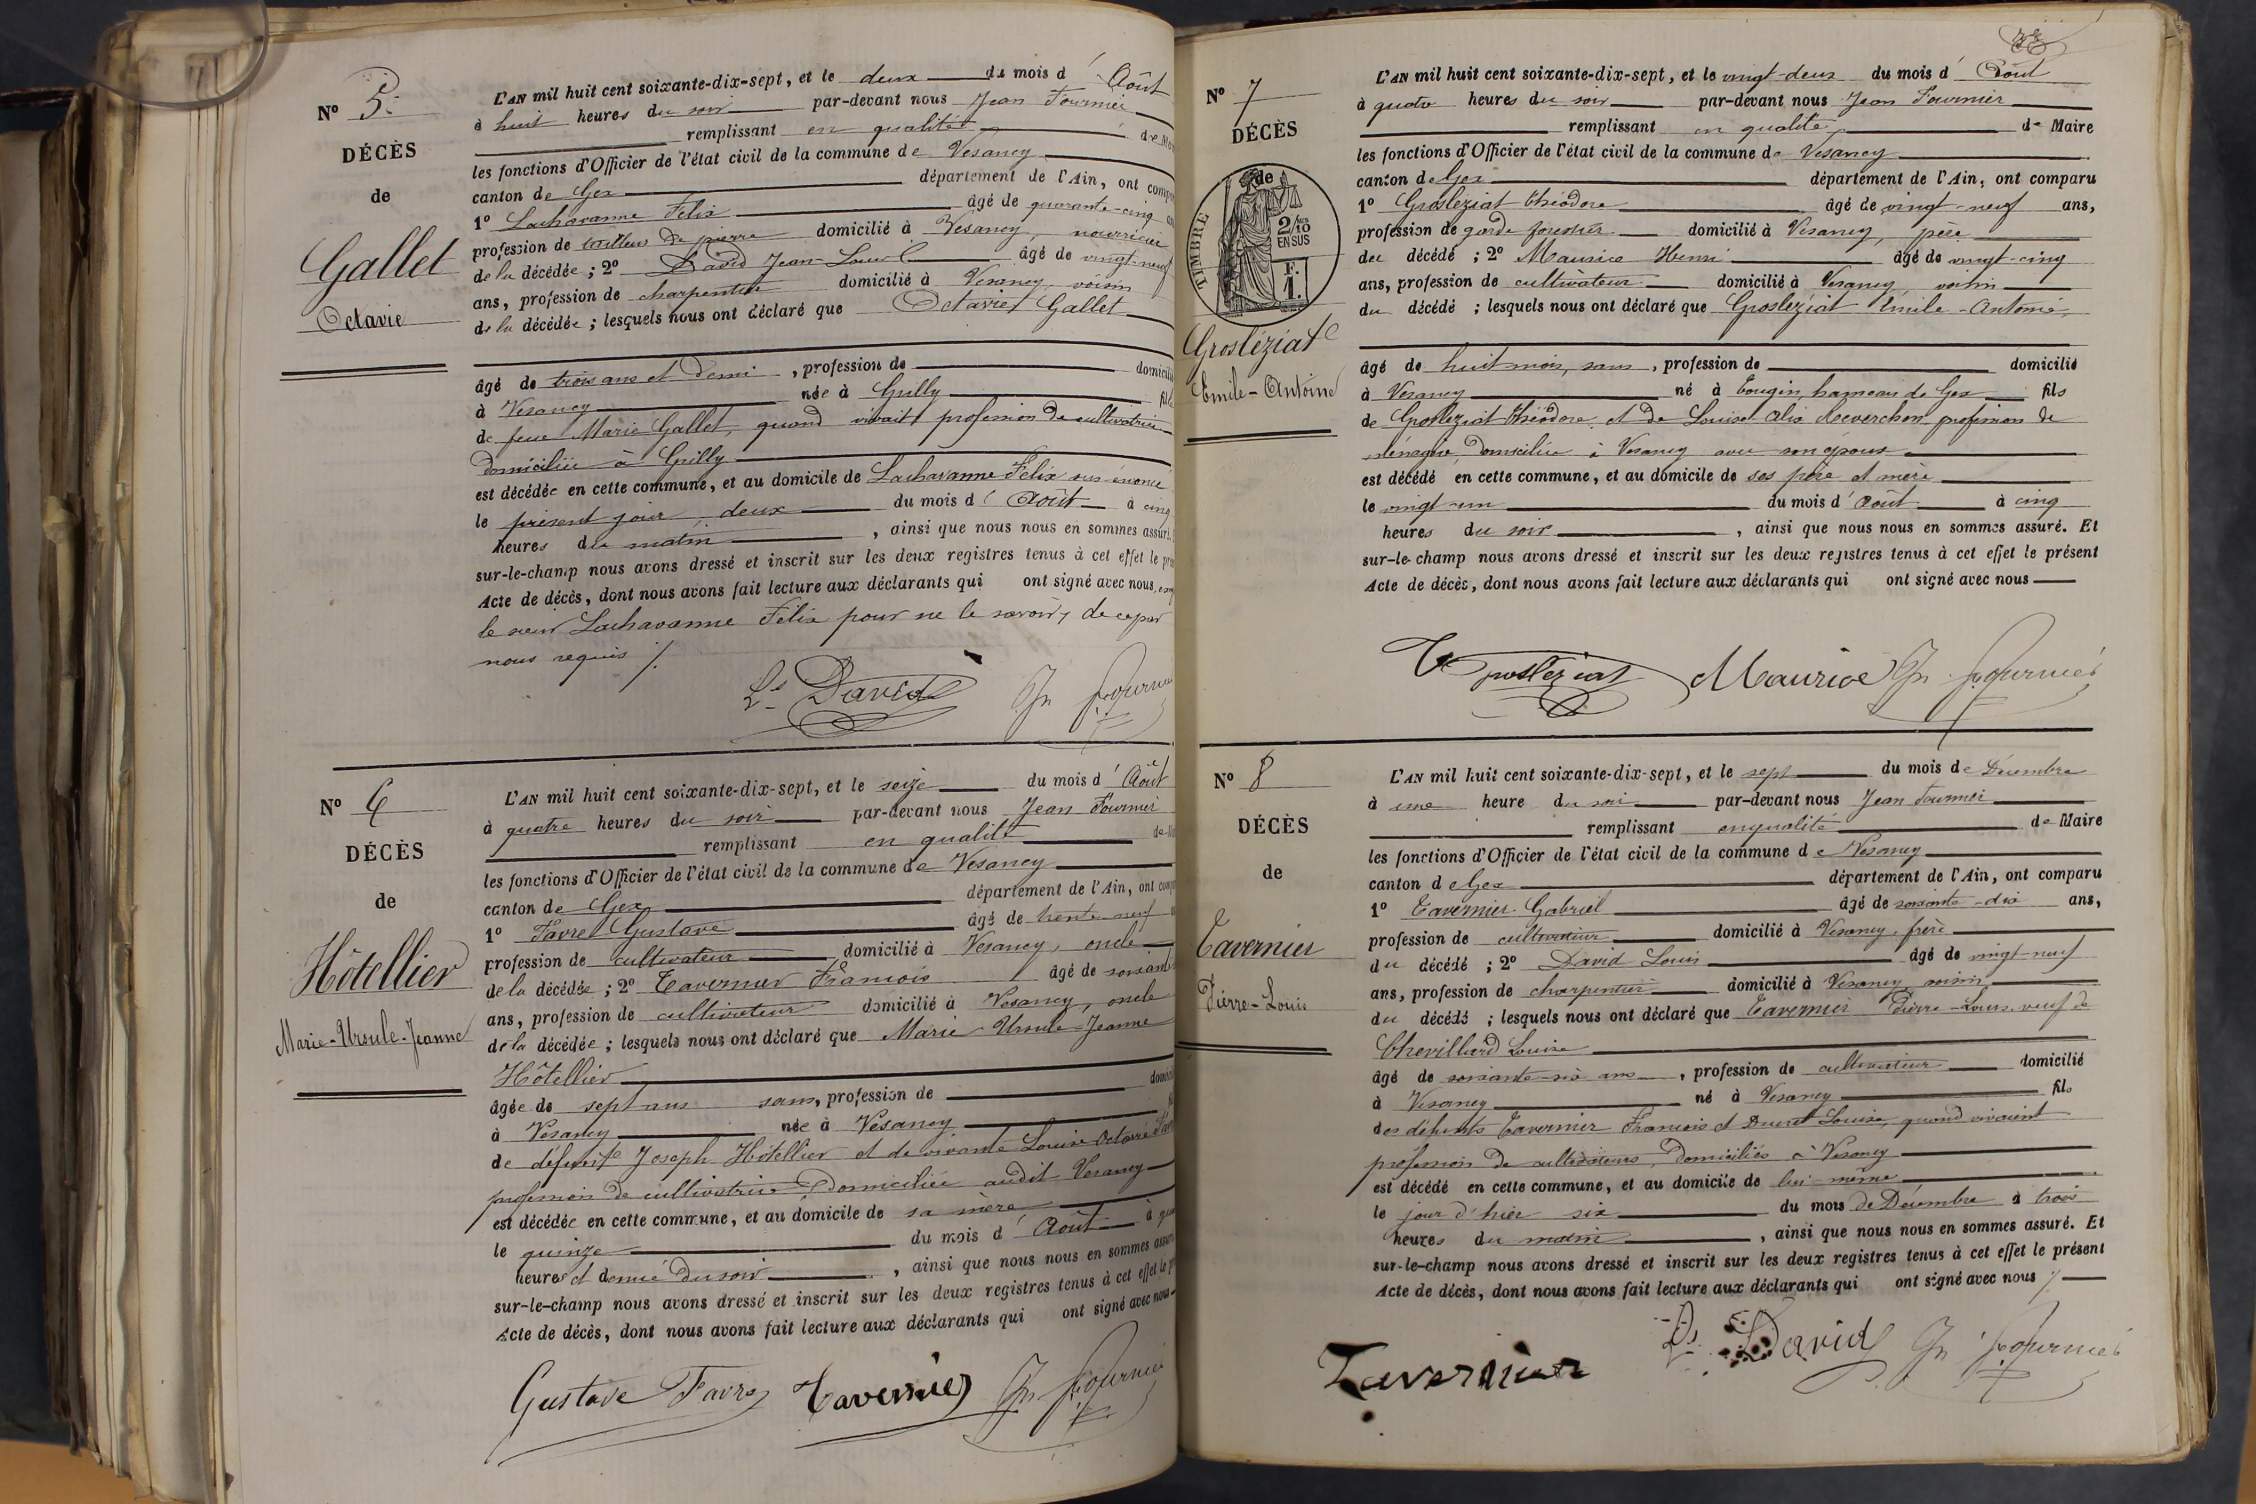 N° 5.
DÉCÈS
de
Gallet
Octavie
L'AN mil huit cent soixante-dix-sept, et le deux du mois d' Août
à huit heures du soir par-devant nous Jean Fournier
remplissant en qualité de
les fonctions d'Officier de l'état civil de la commune de Vesancy
canton de Gex département de l'Ain, ont
1° Lachavanne Felix âgé de quarante-cinq
profession de tailleur de pierre domicilié à Vesancy, nourricier
de la décédée ; 2° David Jean-Louis âgé de vingt-neuf
ans, profession de charpentier domicilié à Vesancy, voisin
de la décédée ; lesquels nous ont déclaré que Octavie Gallet
âgé de trois ans et demi, profession de domicilié
à Vesancy née à Grilly fille
de feue Marie Gallet, quand vivait profession de cultivatrice
domiciliée à Grilly
est décédée en cette commune, et au domicile de Lachavanne Felix sus-énoncé
le présent jour deux du mois d' Août à cinq
heures du matin, ainsi que nous nous en sommes assuré.
sur-le-champ nous avons dressé et inscrit sur les deux registres tenus à cet effet le
Acte de décès, dont nous avons fait lecture aux déclarants qui ont signé avec nous,
le sieur Lachavanne Félix pour ne le savoir, de ce par
nous requis /.
Ls David Jn Fournier
N° 6
DÉCÈS
de
Hôtellier
Marie-Ursule-Jeanne
L'AN mil huit cent soixante-dix-sept, et le seize du mois d' Août
à quatre heures du soir par-devant nous Jean Fournier
remplissant en qualité de
les fonctions d'Officier de l'état civil de la commune de Vesancy
canton de Gex département de l'Ain, ont
1° Favre Gustave âgé de trente-neuf
profession de cultivateur domicilié à Vesancy, oncle
de la décédée ; 2° Tavernier François âgé de soixante
ans, profession de cultivateur domicilié à Vesancy, oncle
de la décédée ; lesquels nous ont déclaré que Marie-Ursule-Jeanne
Hôtellier
âgée de sept ans sans, profession de
à Vesancy née à Vesancy
de défunt Joseph Hôtellier et de vivante Louise Octavie
profession de cultivatrice, domiciliée audit Vesancy
est décédée en cette commune, et au domicile de sa mère
le quinze du mois d' Août à
heures et demie du soir, ainsi que nous nous en sommes
sur-le-champ nous avons dressé et inscrit sur les deux registres tenus à cet effet le
Acte de décès, dont nous avons fait lecture aux déclarants qui ont signé avec nous
Gustave Favre Tavernier Jn Fournier
N° 7
DÉCÈS
de
TIMBRE
2/10
EN SUS
F.
1.
Grosléziat
Emile-Antoine
L'AN mil huit cent soixante-dix-sept, et le vingt-deux du mois d' Août
à quatre heures du soir par-devant nous Jean Fournier
remplissant en qualité de Maire
les fonctions d'Officier de l'état civil de la commune de Vesancy
canton de Gex département de l'Ain, ont comparu
1° Grosléziat Théodore âgé de vingt-neuf ans,
profession de garde forestier domicilié à Vesancy, père
du décédé ; 2° Maurice Henri âgé de vingt-cinq
ans, profession de cultivateur domicilié à Vesancy, voisin
du décédé ; lesquels nous ont déclaré que Grosléziat Emile-Antoine,
âgé de huit mois, sans, profession de domicilié
à Vesancy né à Tougin, hameau de Gex fils
de Grosléziat Théodore et de Louise Alix profession de
ménagère, domiciliée à Vesancy avec son époux
est décédé en cette commune, et au domicile de ses père et mère
le vingt-un du mois d' Août à cinq
heures du soir, ainsi que nous nous en sommes assuré. Et
sur-le-champ nous avons dressé et inscrit sur les deux registres tenus à cet effet le présent
Acte de décès, dont nous avons fait lecture aux déclarants qui ont signé avec nous
Grosleziat Maurice Jn Fournier
N° 8
DÉCÈS
de
Tavernier
Pierre-Louis
L'AN mil huit cent soixante-dix-sept, et le sept du mois de Décembre
à une heure du soir par-devant nous Jean Fournier
remplissant en qualité de Maire
les fonctions d'Officier de l'état civil de la commune de Vesancy
canton de Gex département de l'Ain, ont comparu
1° Tavernier Gabriel âgé de soixante-dix ans,
profession de cultivateur domicilié à Vesancy, frère
du décédé ; 2° David Louis âgé de vingt-neuf
ans, profession de charpentier domicilié à Vesancy, voisin
du décédé ; lesquels nous ont déclaré que Tavernier Pierre-Louis, veuf de
Chevillard Louise
âgé de soixante-six ans, profession de cultivateur domicilié
à Vesancy né à Vesancy fils
des défunts Tavernier François et Ducret Louise, quand vivaient
profession de cultivateurs, domiciliés à Vesancy
est décédé en cette commune, et au domicile de lui-même
le jour d'hier six du mois de Décembre à trois
heures du matin, ainsi que nous nous en sommes assuré. Et
sur-le-champ nous avons dressé et inscrit sur les deux registres tenus à cet effet le présent
Acte de décès, dont nous avons fait lecture aux déclarants qui ont signé avec nous /.
Tavernier Ls David Jn Fournier